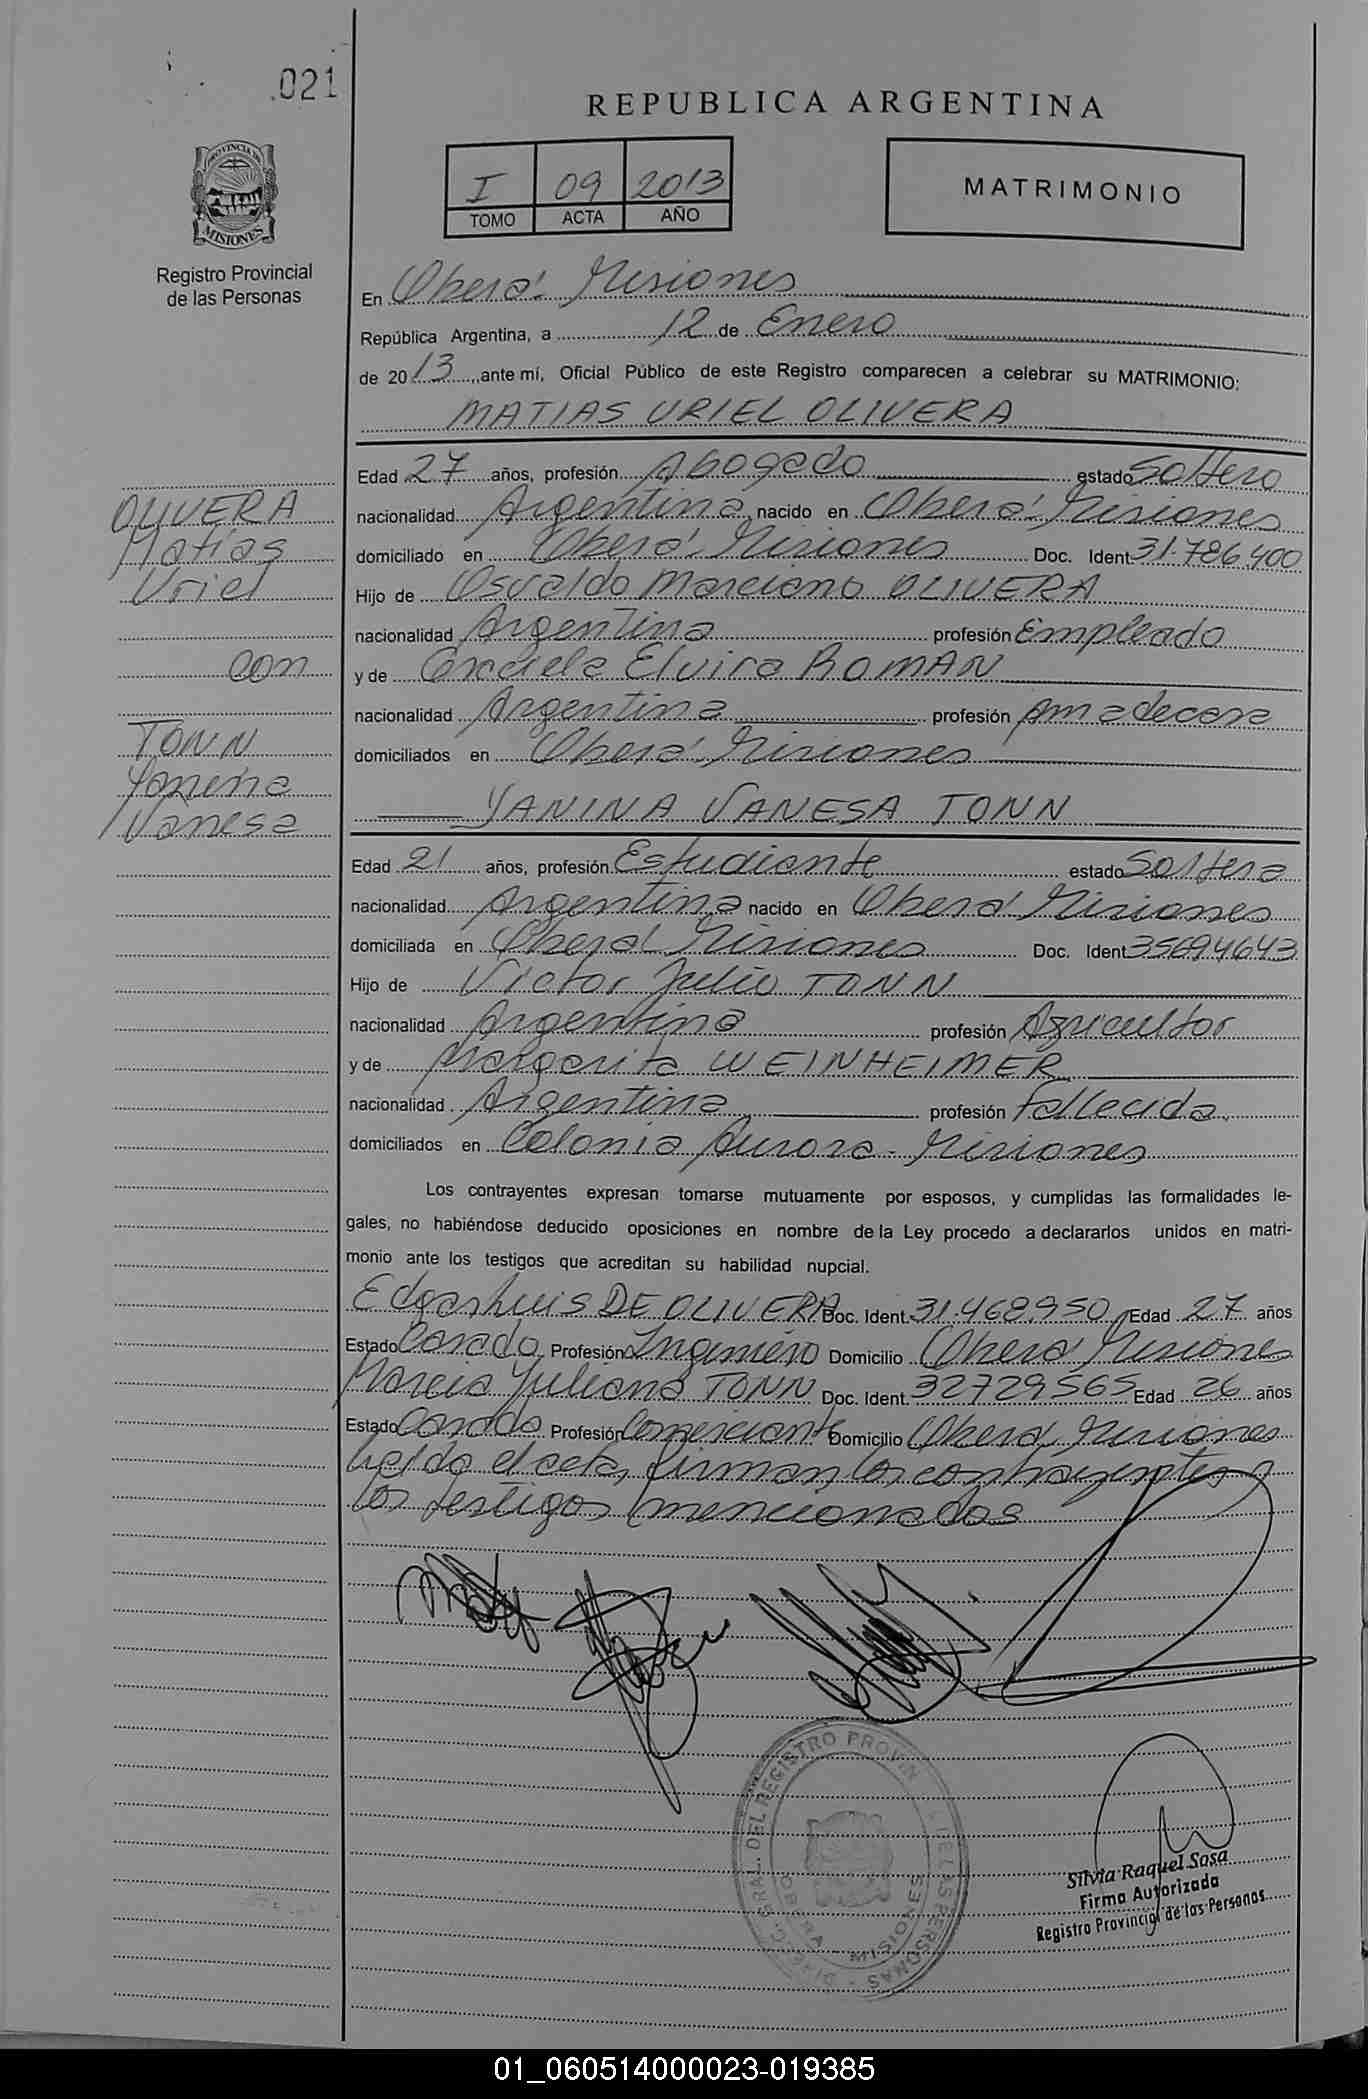 .021
REPUBLICA ARGENTINA
I 09 2013
TOMO ACTA AÑO
MATRIMONIO
PROVINCIA DE
MISIONES
Registro Provincial
de las Personas
En Oberá. Misiones
República Argentina, a 12 de Enero
de 2013, ante mí, Oficial Público de este Registro comparecen a celebrar su MATRIMONIO:
MATIAS URIEL OLIVERA
Edad 27 años, profesión Abogado estado Soltero
nacionalidad Argentina nacido en Oberá. Misiones
domiciliado en Oberá. Misiones Doc. Ident. 31.786.400
Hijo de Osvaldo Marciano OLIVERA
nacionalidad Argentina profesión Empleado
y de Graciela Elvira ROMAN
nacionalidad Argentina profesión Ama de casa
domiciliados en Oberá. Misiones
YANINA VANESA TONN
Edad 21 años, profesión Estudiante estado Soltera
nacionalidad Argentina nacido en Oberá Misiones
domiciliada en Oberá Misiones Doc. Ident. 35694643
Hijo de Victor Julio TONN
nacionalidad Argentina profesión Agricultor
y de Margarita WEINHEIMER
nacionalidad Argentina profesión Fallecida.
domiciliados en Colonia Aurora - Misiones
Los contrayentes expresan tomarse mutuamente por esposos, y cumplidas las formalidades le-
gales, no habiéndose deducido oposiciones en nombre de la Ley procedo a declararlos unidos en matri-
monio ante los testigos que acreditan su habilidad nupcial.
Edgar Luis DE OLIVERA Doc. Ident. 31.468.950 Edad 27 años
Estado Casado Profesión Ingeniero Domicilio Oberá Misiones
Marcia Juliana TONN Doc. Ident. 32729565 Edad 26 años
Estado Casada Profesión Comerciante Domicilio Oberá, Misiones
Leída el acta, firman los contrayentes y
los testigos mencionados
OLIVERA
Matías
Uriel
con
TONN
Yanina
Vanesa
DIRECC. GRAL. DEL REGISTRO PROVIN DE LAS PERSONAS
OBERA MISIONES
Silvia Raquel Sosa
Firma Autorizada
Registro Provincial de las Personas
01_060514000023-019385